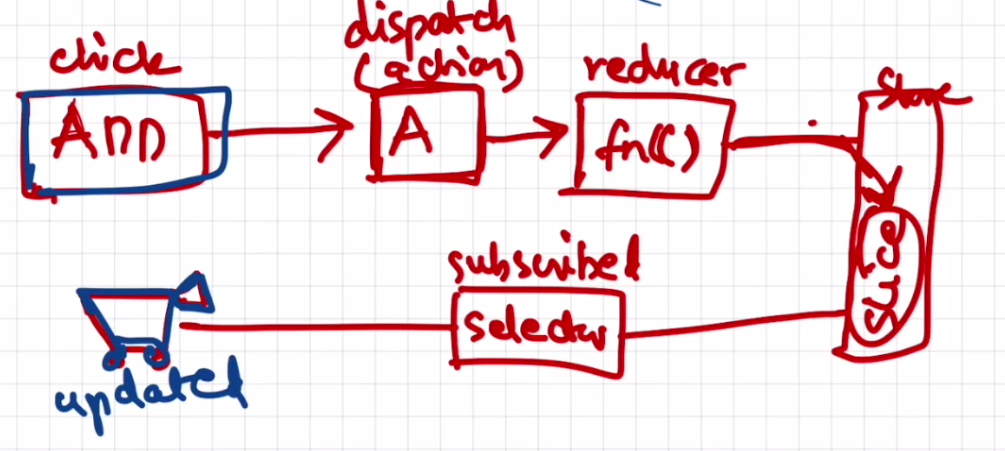 click
ADD
dispatch
(action)
A
reducer
fn()
Store
Slice
subscribed
Selector
updated